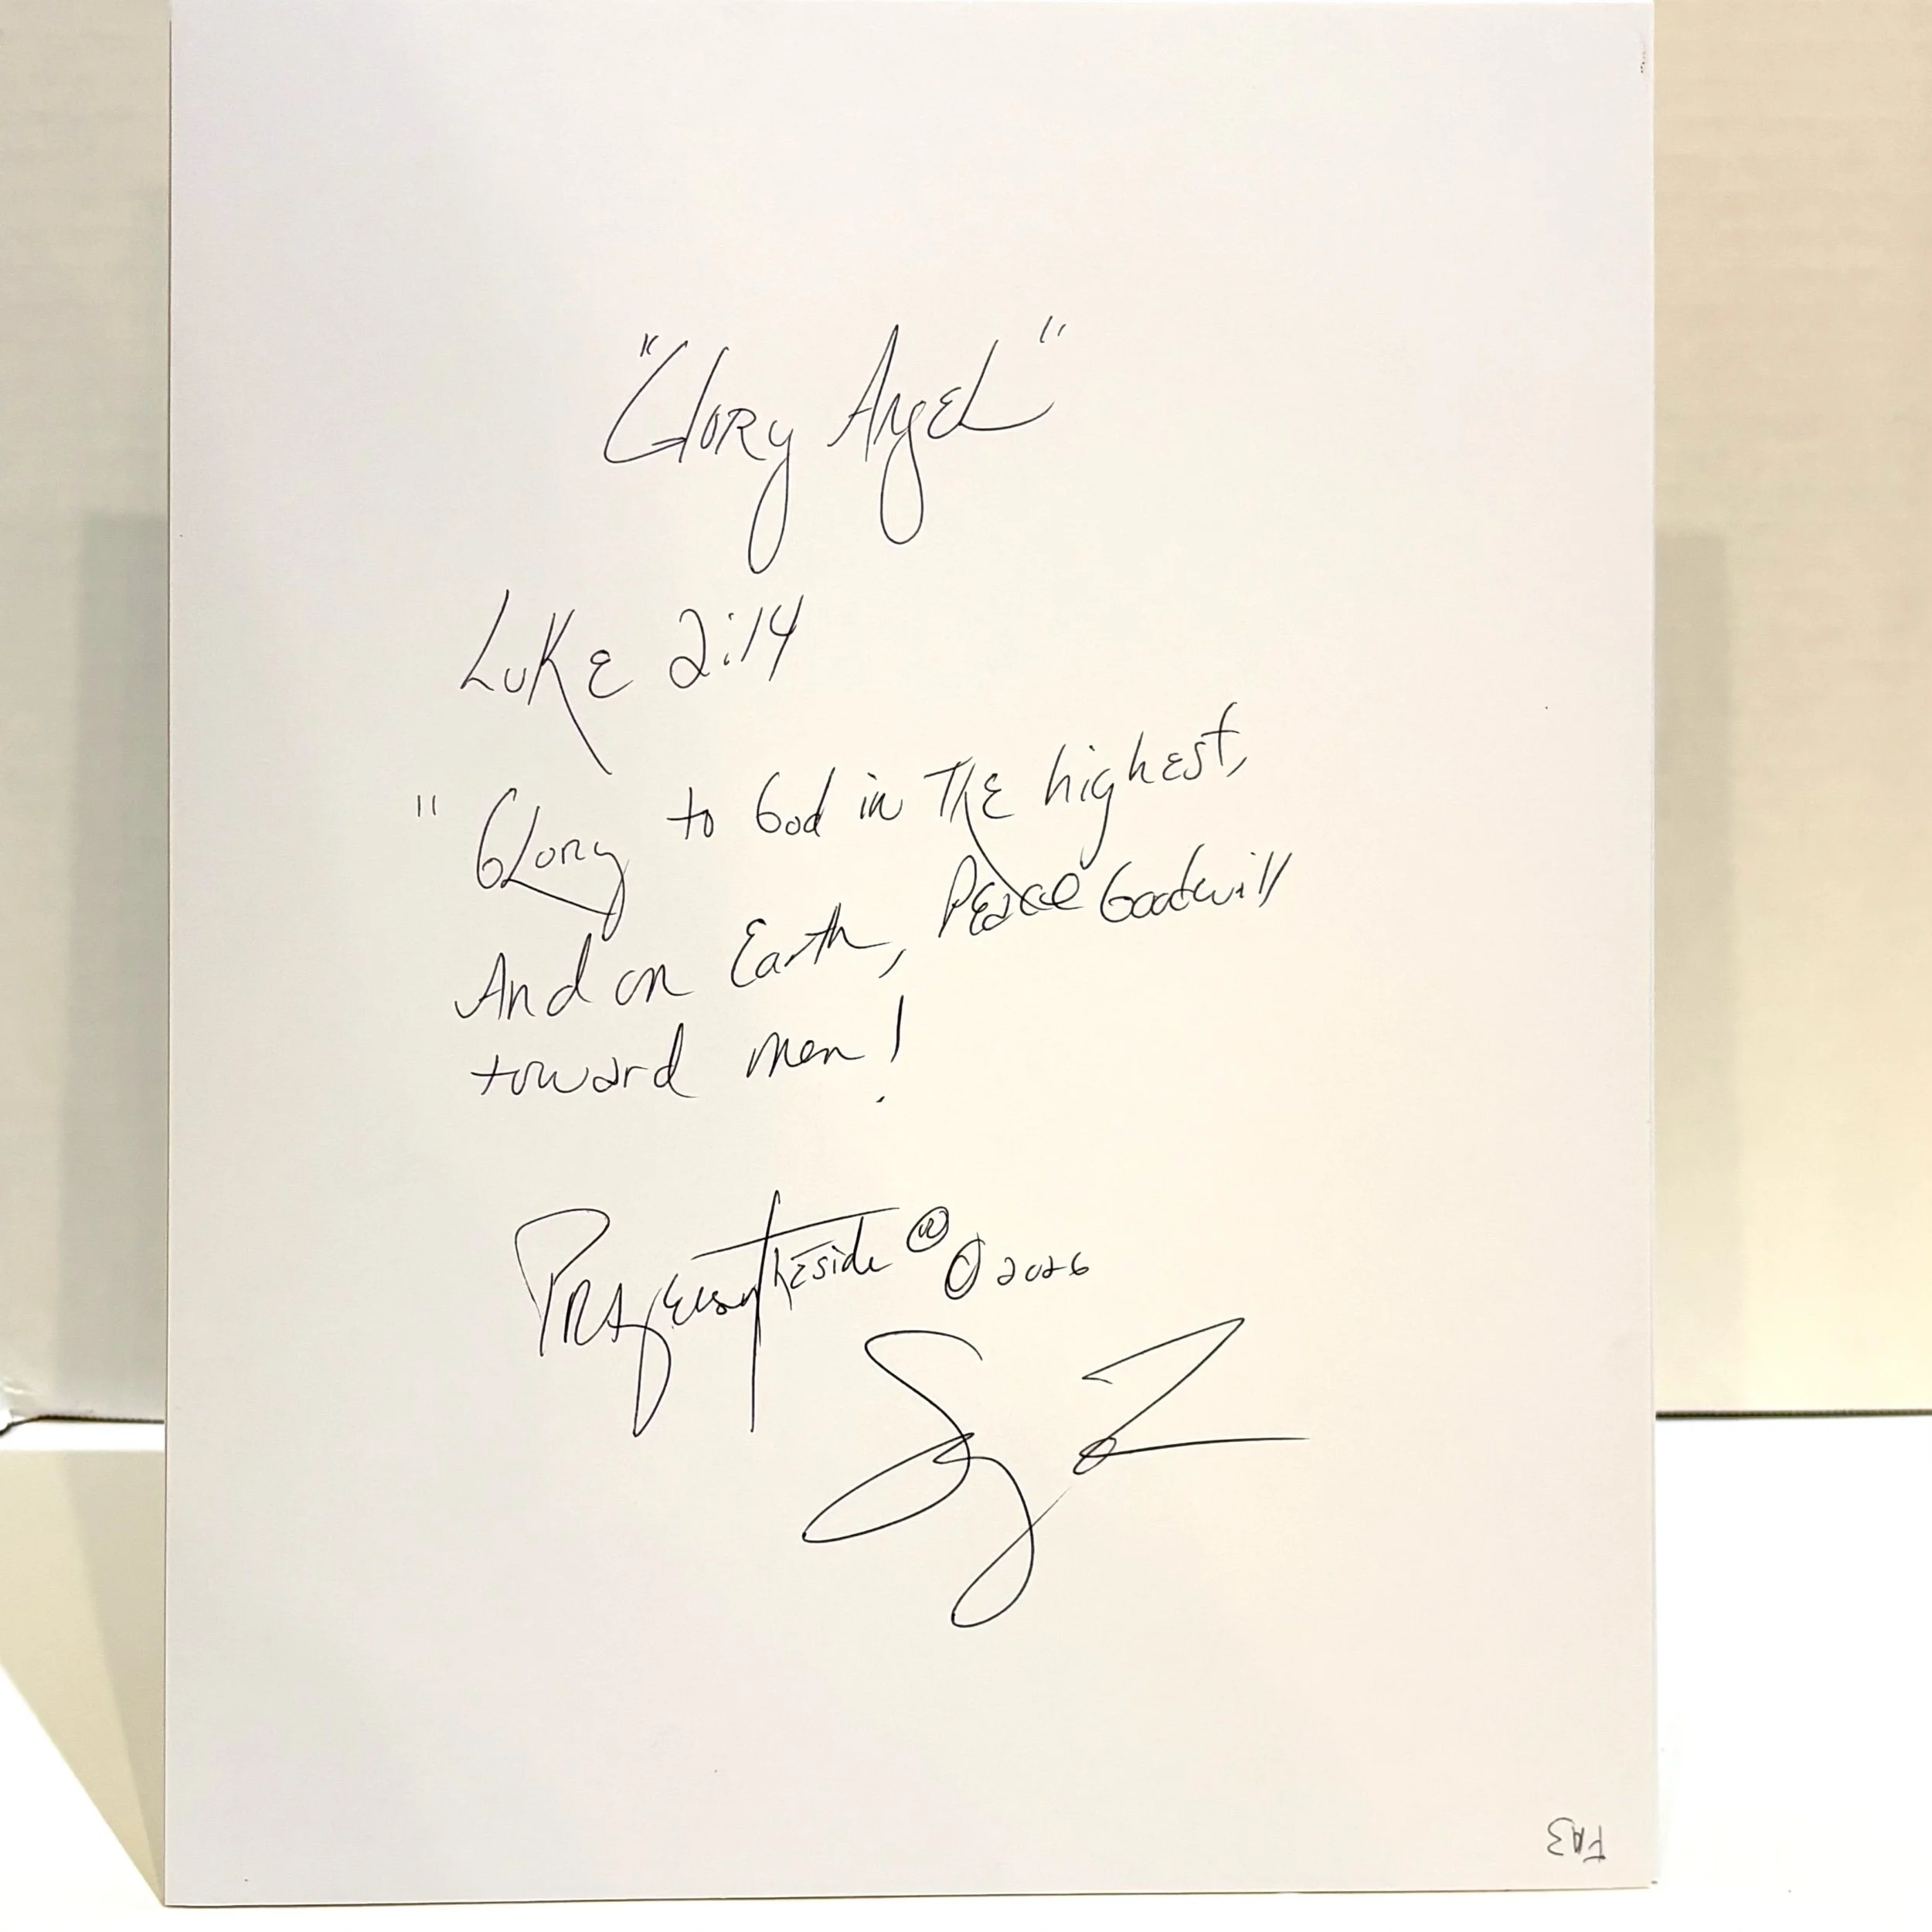 "Glory Angel"
Luke 2:14
"Glory to God in The highest,
And on Earth, Peace Goodwill
toward men!
Prayersbytheside ® © 2026
FA3